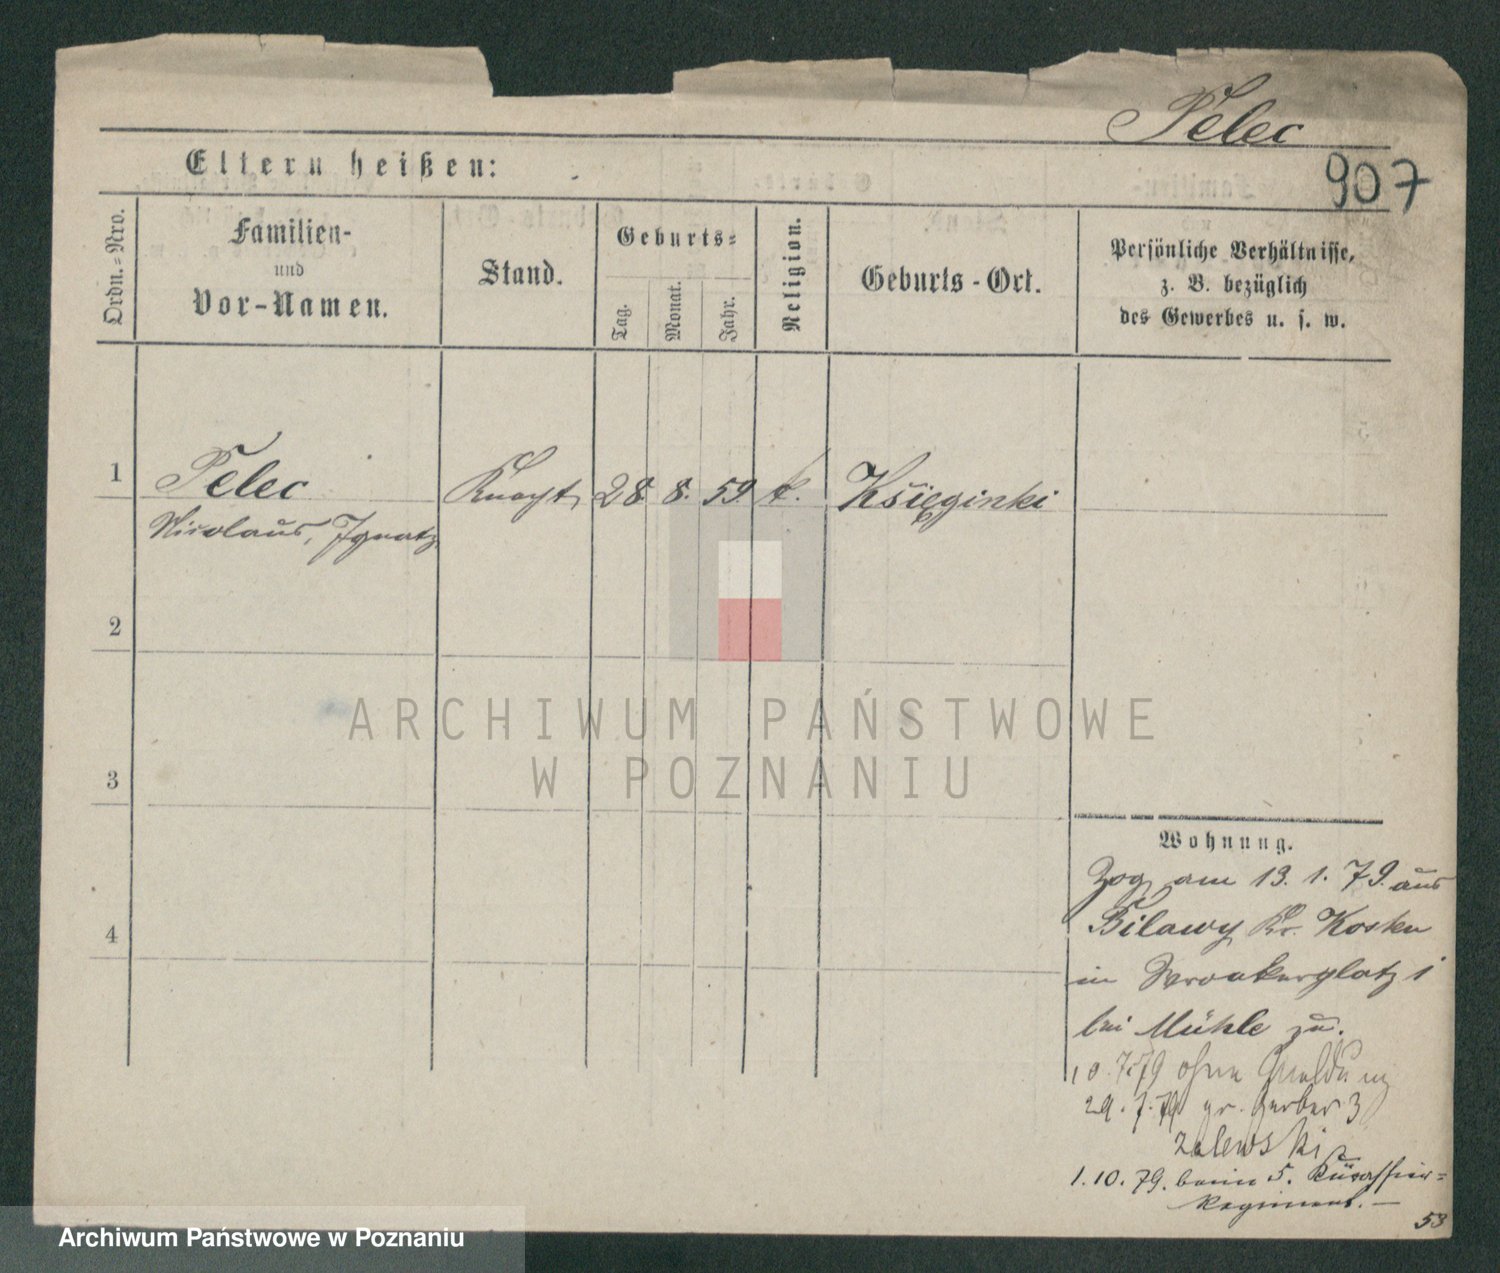 Pelec
907
Eltern heißen:
Ordn.=Nro.
Familien-
und
Vor-Namen.
Stand.
Geburts=
Tag.
Monat.
Jahr.
Religion.
Geburts-Ort.
Persönliche Verhältnisse,
z. B. bezüglich
des Gewerbes u. s. w.
1
Pelec
Knecht
28. 8. 59. k.
Książginki
Nicolaus, Ignatz
2
3
4
ARCHIWUM PAŃSTWOWE
W POZNANIU
Wohnung.
Zog am 13. 1. 79. aus
Bilawy Kr. Kosten
in Wronkerplatz 1
bei Mühle zu.
10.7.79 ohne Meldung
29.7.79 gr. Gerber 3
Zalewski
1.10.79. beim 5. Kürassier=
Regiment.—
53
Archiwum Państwowe w Poznaniu